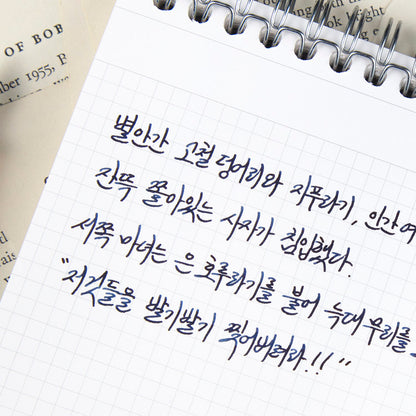 OF BOB
ber 1955, Bob
별안간 고철 덩어리와 지푸라기, 인간여
잔뜩 쫄아있는 사자가 침입했다.
서쪽 마녀는 은 호루라기를 불어 늑대 무리를
"저것들을 발기발기 찢어버려라!!"